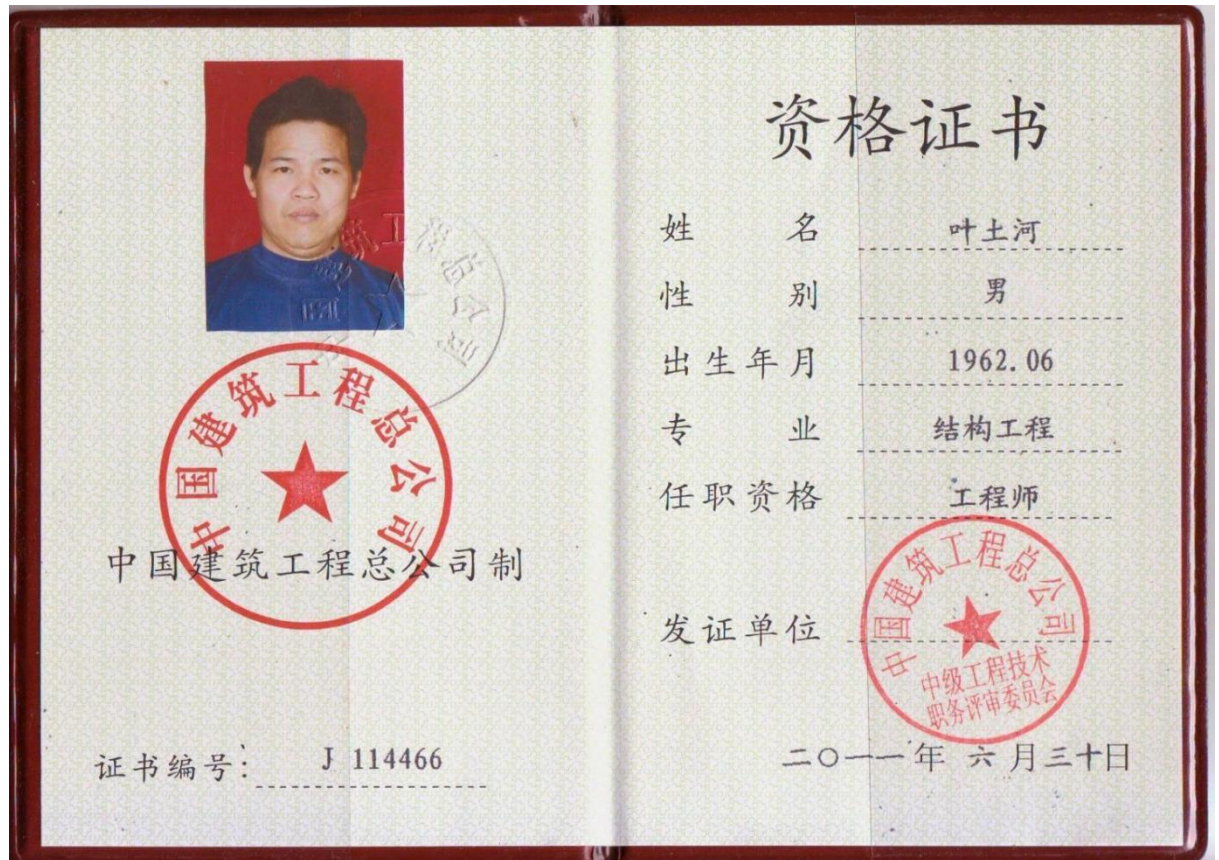 中国建筑工程总公司
中国建筑工程总公司制
证书编号: J 114466
资格证书
姓名 叶土河
性别 男
出生年月 1962.06
专业 结构工程
任职资格 工程师
发证单位
中国建筑工程总公司
中级工程技术
职务评审委员会
二〇一一年 六月三十日